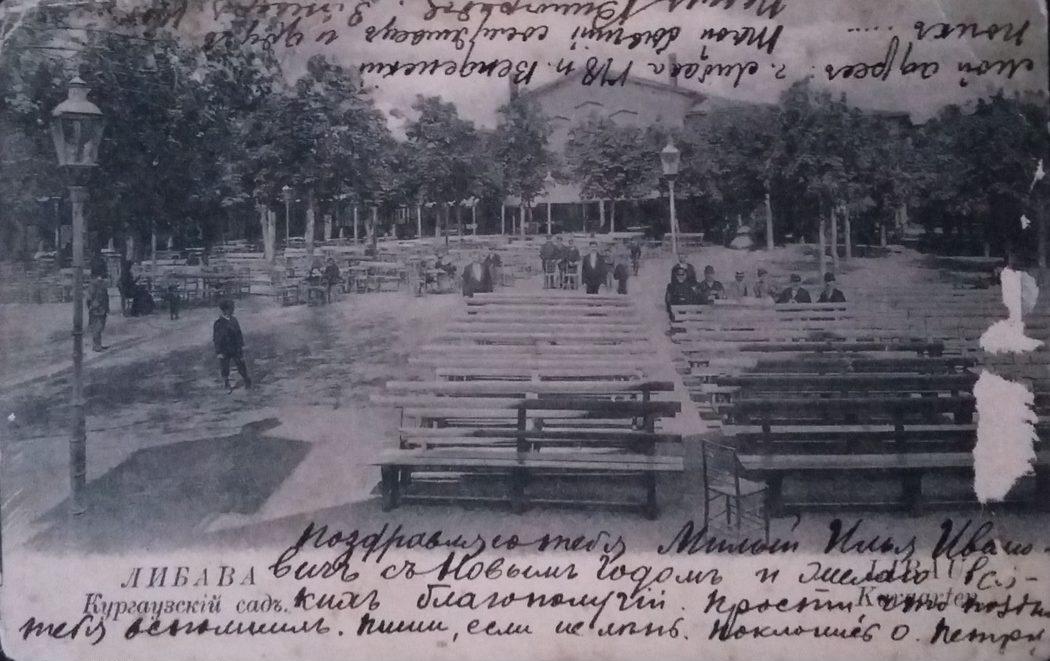 Поздравляю тебя Милый Илья Ивано-
вичъ съ Новымъ Годомъ и желаю вся-
кихъ благополучій. Прости что поздно
тебя вспомнилъ. Пиши, если не лѣнь. Поклонись о. Петру,
ЛИБАВА
Кургаузскій садъ.
LIBAU
Kurgarten
Мой адресъ: г. Либава 178 п. Венденскій
полкъ ....
Твой бывшій сослуживецъ и другъ